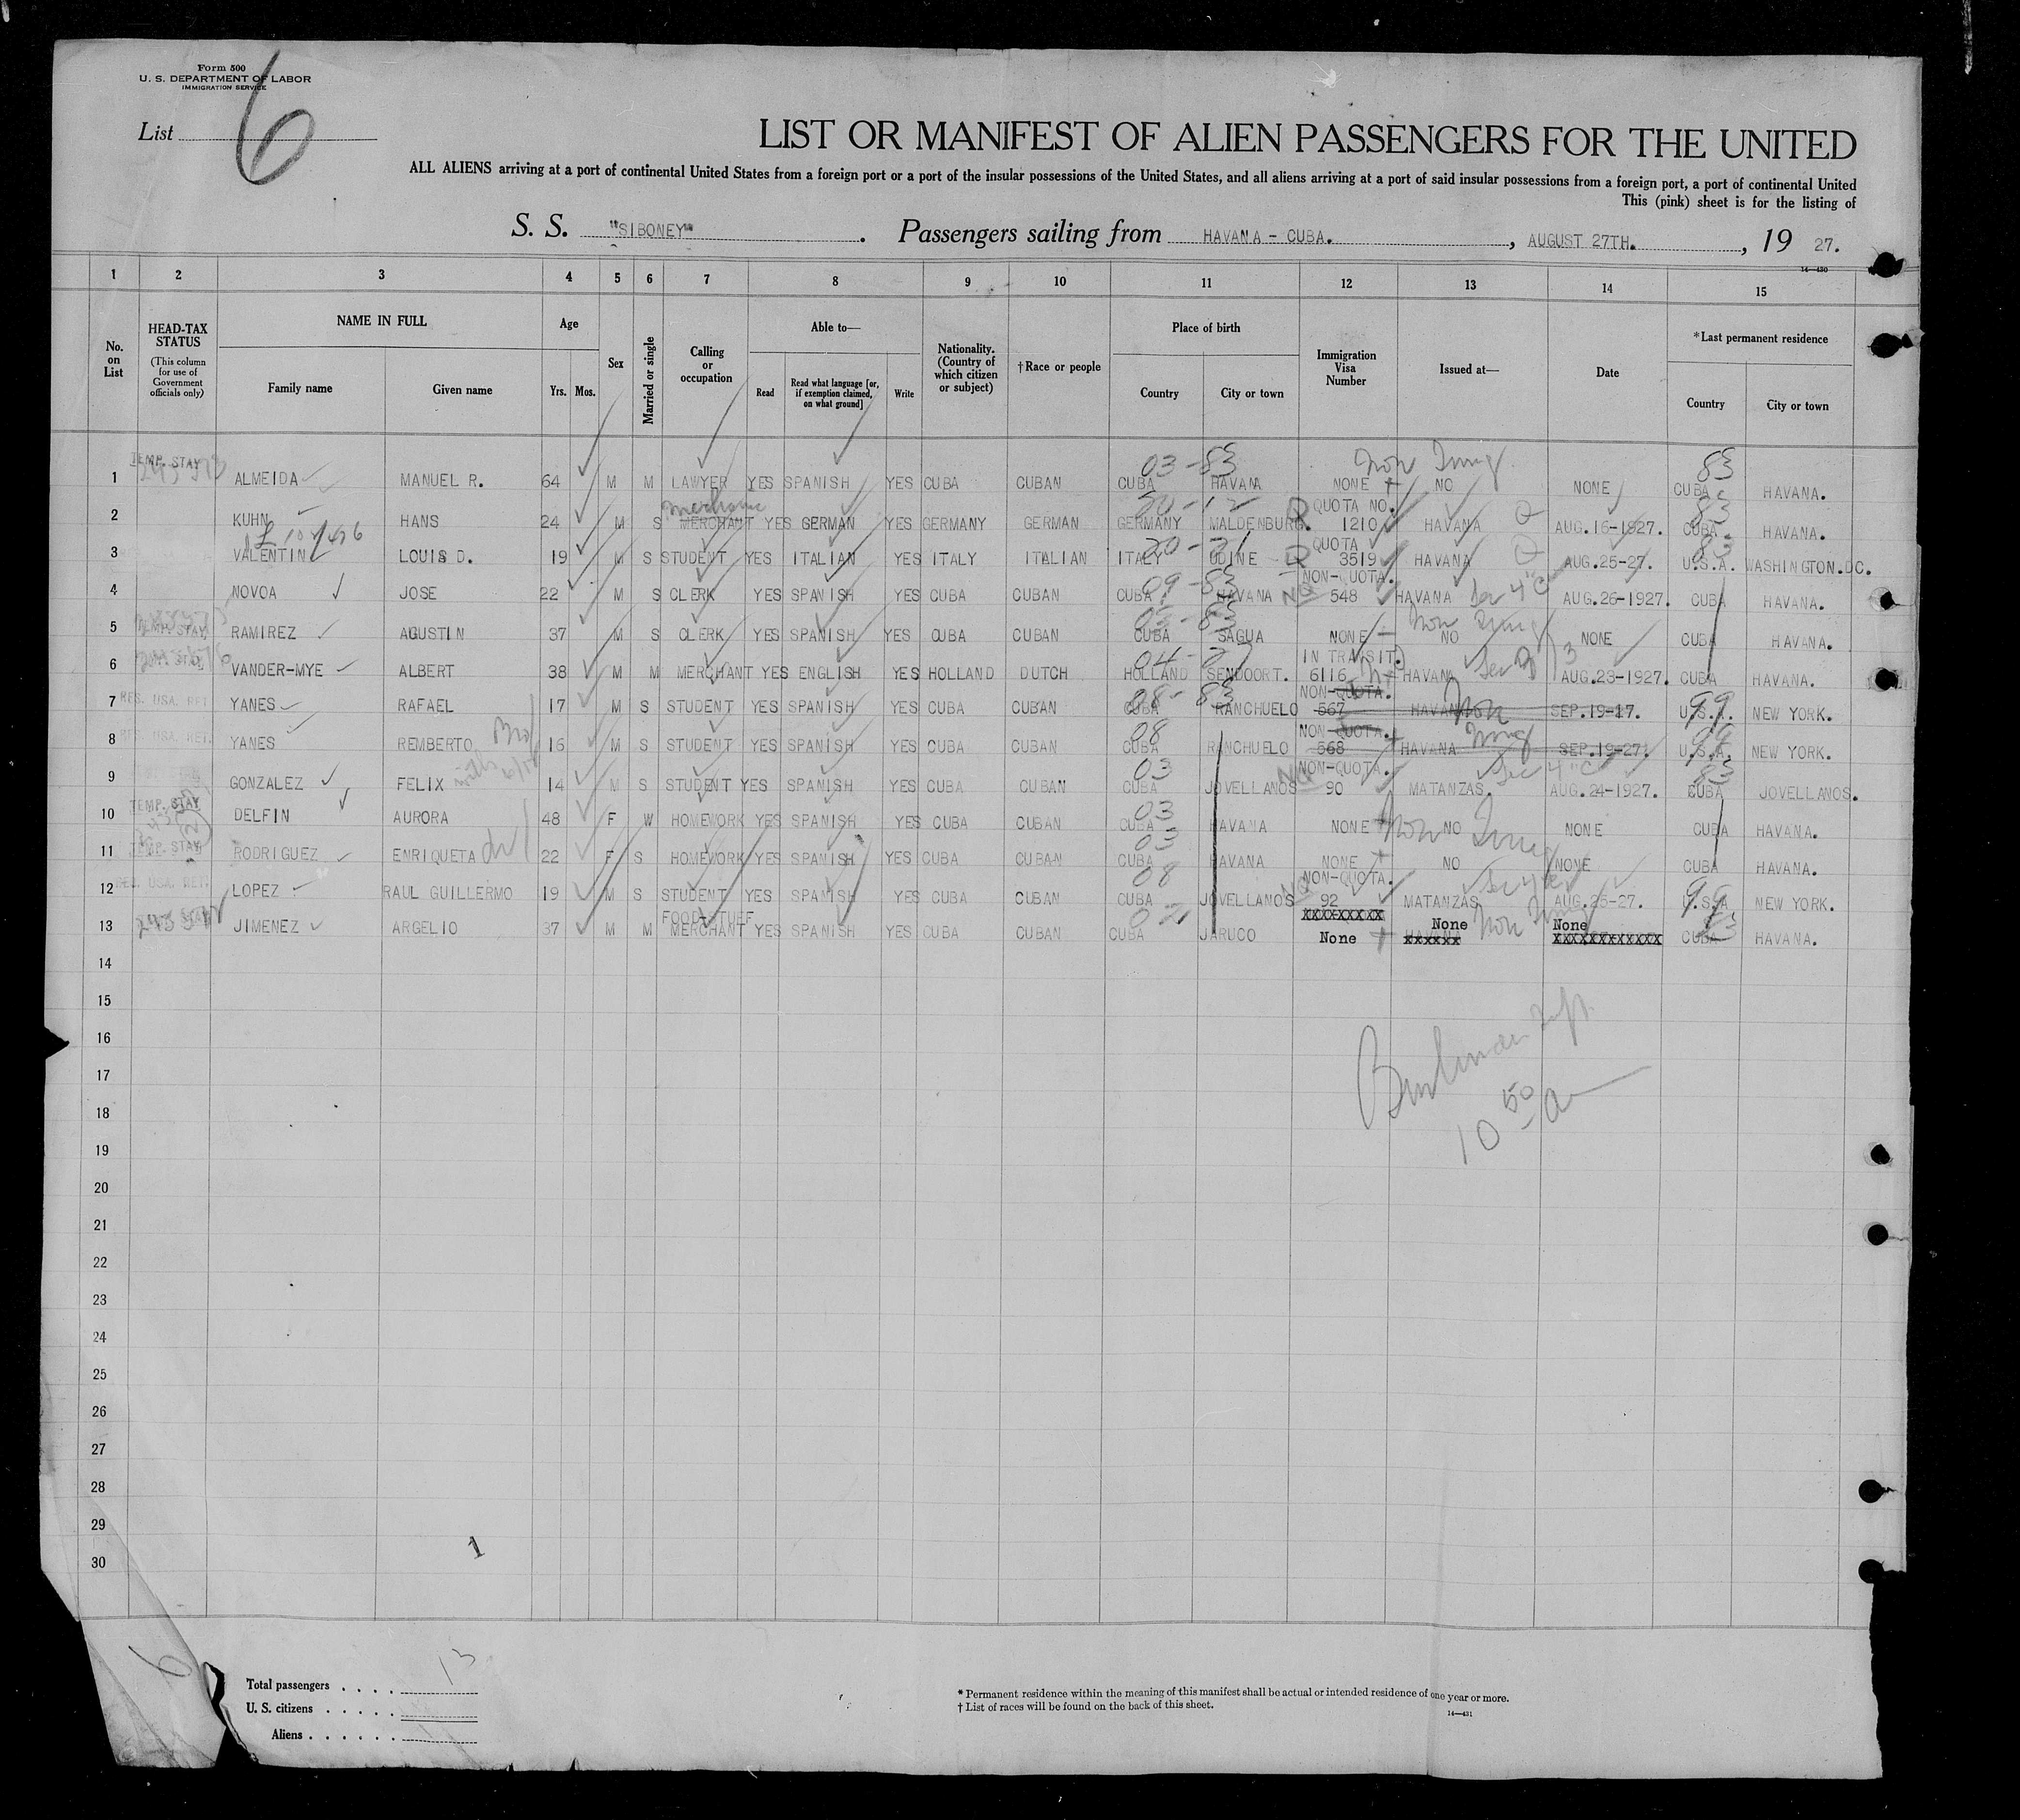 Form 500
U. S. DEPARTMENT OF LABOR
IMMIGRATION SERVICE
List 6
LIST OR MANIFEST OF ALIEN PASSENGERS FOR THE UNITED
ALL ALIENS arriving at a port of continental United States from a foreign port or a port of the insular possessions of the United States, and all aliens arriving at a port of said insular possessions from a foreign port, a port of continental United
This (pink) sheet is for the listing of
S. S. "SIBONEY" . Passengers sailing from HAVANA - CUBA. , AUGUST 27TH. , 19 27.
14—430
1 2 3 4 5 6 7 8 9 10 11 12 13 14 15
No. on List
HEAD-TAX STATUS
(This column for use of Government officials only)
NAME IN FULL
Family name Given name
Age
Yrs. Mos.
Sex
Married or single
Calling or occupation
Able to—
Read
Read what language [or, if exemption claimed, on what ground]
Write
Nationality. (Country of which citizen or subject)
†Race or people
Place of birth
Country City or town
Immigration Visa Number
Issued at—
Date
*Last permanent residence
Country City or town
TEMP. STAY 03-83 Non Immg 83
1 ALMEIDA MANUEL R. 64 M M LAWYER YES SPANISH YES CUBA CUBAN CUBA HAVANA NONE NO NONE CUBA HAVANA.
mechanic QUOTA NO. 83
2 KUHN HANS 24 M S MERCHANT YES GERMAN YES GERMANY GERMAN GERMANY MALDENBURG. Q 1210 HAVANA Q AUG.16-1927. CUBA. HAVANA.
QUOTA 83
3 VALENTIN LOUIS D. 19 M S STUDENT YES ITALIAN YES ITALY ITALIAN ITALY UDINE Q 3519 HAVANA Q AUG.25-27. U.S.A. WASHINGTON.DC.
09-83 NON-QUOTA.
4 NOVOA JOSE 22 M S CLERK YES SPANISH YES CUBA CUBAN CUBA HAVANA NQ 548 HAVANA Sec 4 C AUG.26-1927. CUBA HAVANA.
TEMP. STAY Non Immg
5 RAMIREZ AGUSTIN 37 M S CLERK YES SPANISH YES CUBA CUBAN CUBA SAGUA NONE NO NONE CUBA HAVANA.
IN TRANSIT.
6 VANDER-MYE ALBERT 38 M M MERCHANT YES ENGLISH YES HOLLAND DUTCH HOLLAND SENDOORT. 6116 HAVANA Sec 3 AUG.23-1927. CUBA HAVANA.
08-83 NON-QUOTA. 99
7 RES. USA. RET. YANES RAFAEL 17 M S STUDENT YES SPANISH YES CUBA CUBAN CUBA RANCHUELO 567 HAVANA Non SEP.19-27. U.S.A. NEW YORK.
08 NON-QUOTA.
8 RES. USA. RET. YANES REMBERTO Bro 16 M S STUDENT YES SPANISH YES CUBA CUBAN CUBA RANCHUELO 568 HAVANA Immg SEP.19-27. U.S.A. NEW YORK.
03 NON-QUOTA. Sec 4 C 83
9 GONZALEZ FELIX 14 M S STUDENT YES SPANISH YES CUBA CUBAN CUBA JOVELLANOS NQ 90 MATANZAS. AUG.24-1927. CUBA JOVELLANOS.
TEMP. STAY 03
10 DELFIN AURORA 48 F W HOMEWORK YES SPANISH YES CUBA CUBAN CUBA HAVANA NONE Non NO Immg NONE CUBA HAVANA.
TEMP. STAY 03
11 RODRIGUEZ ENRIQUETA 22 F S HOMEWORK YES SPANISH YES CUBA CUBAN CUBA HAVANA NONE NO NONE CUBA HAVANA.
RES. USA. RET. 08 NON-QUOTA.
12 LOPEZ RAUL GUILLERMO 19 M S STUDENT YES SPANISH YES CUBA CUBAN CUBA JOVELLANOS NQ 92 MATANZAS AUG.25-27. U.S.A NEW YORK.
FOOD-STUFF XXXXXXXXX None Non Immg None
13 JIMENEZ ARGELIO 37 M M MERCHANT YES SPANISH YES CUBA CUBAN CUBA JARUCO None XXXXXX XXXXXXXXXXXX CUBA HAVANA.
14
15
16
17
18
10 50 a
19
20
21
22
23
24
25
26
27
28
29
1
30
6
Total passengers . . . . 13
U. S. citizens . . . . .
Aliens . . . . . .
* Permanent residence within the meaning of this manifest shall be actual or intended residence of one year or more.
† List of races will be found on the back of this sheet.
14—431